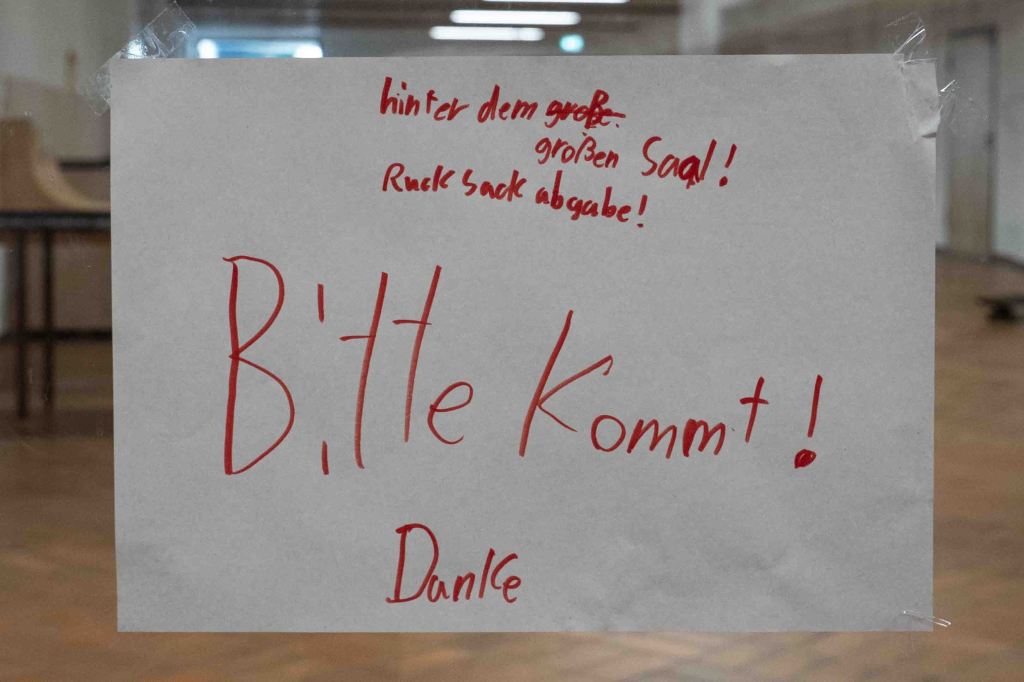 hinter dem große
großen Saal!
Ruck Sack abgabe!
Bitte Kommt!
Danke